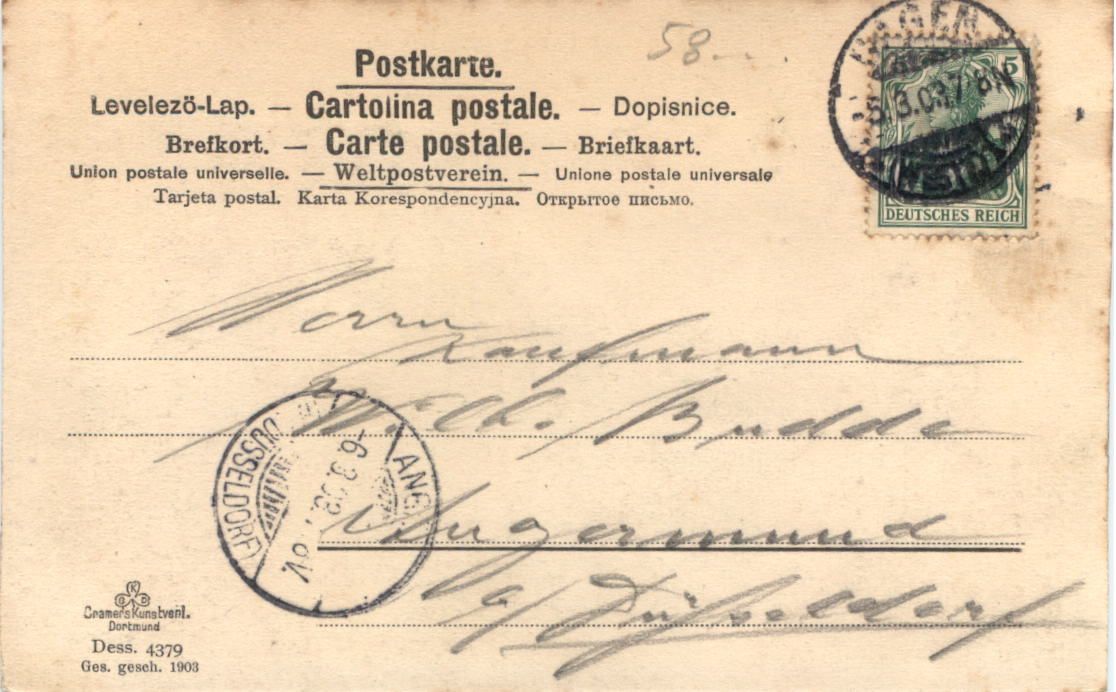 58
Postkarte.
Levelezö-Lap. — Cartolina postale. — Dopisnice.
Brefkort. — Carte postale. — Briefkaart.
Union postale universelle. — Weltpostverein. — Unione postale universale
Tarjeta postal. Karta Korespondencyjna. Открытое письмо.
HAGEN
5
DEUTSCHES REICH
Herrn
Kaufmann
Wilh. Budde
Angermund
Düsseldorf
DÜSSELDORF
ANG
-6.3.03
V.
K
Cramers Kunstverl.
Dortmund
Dess. 4379
Ges. gesch. 1903